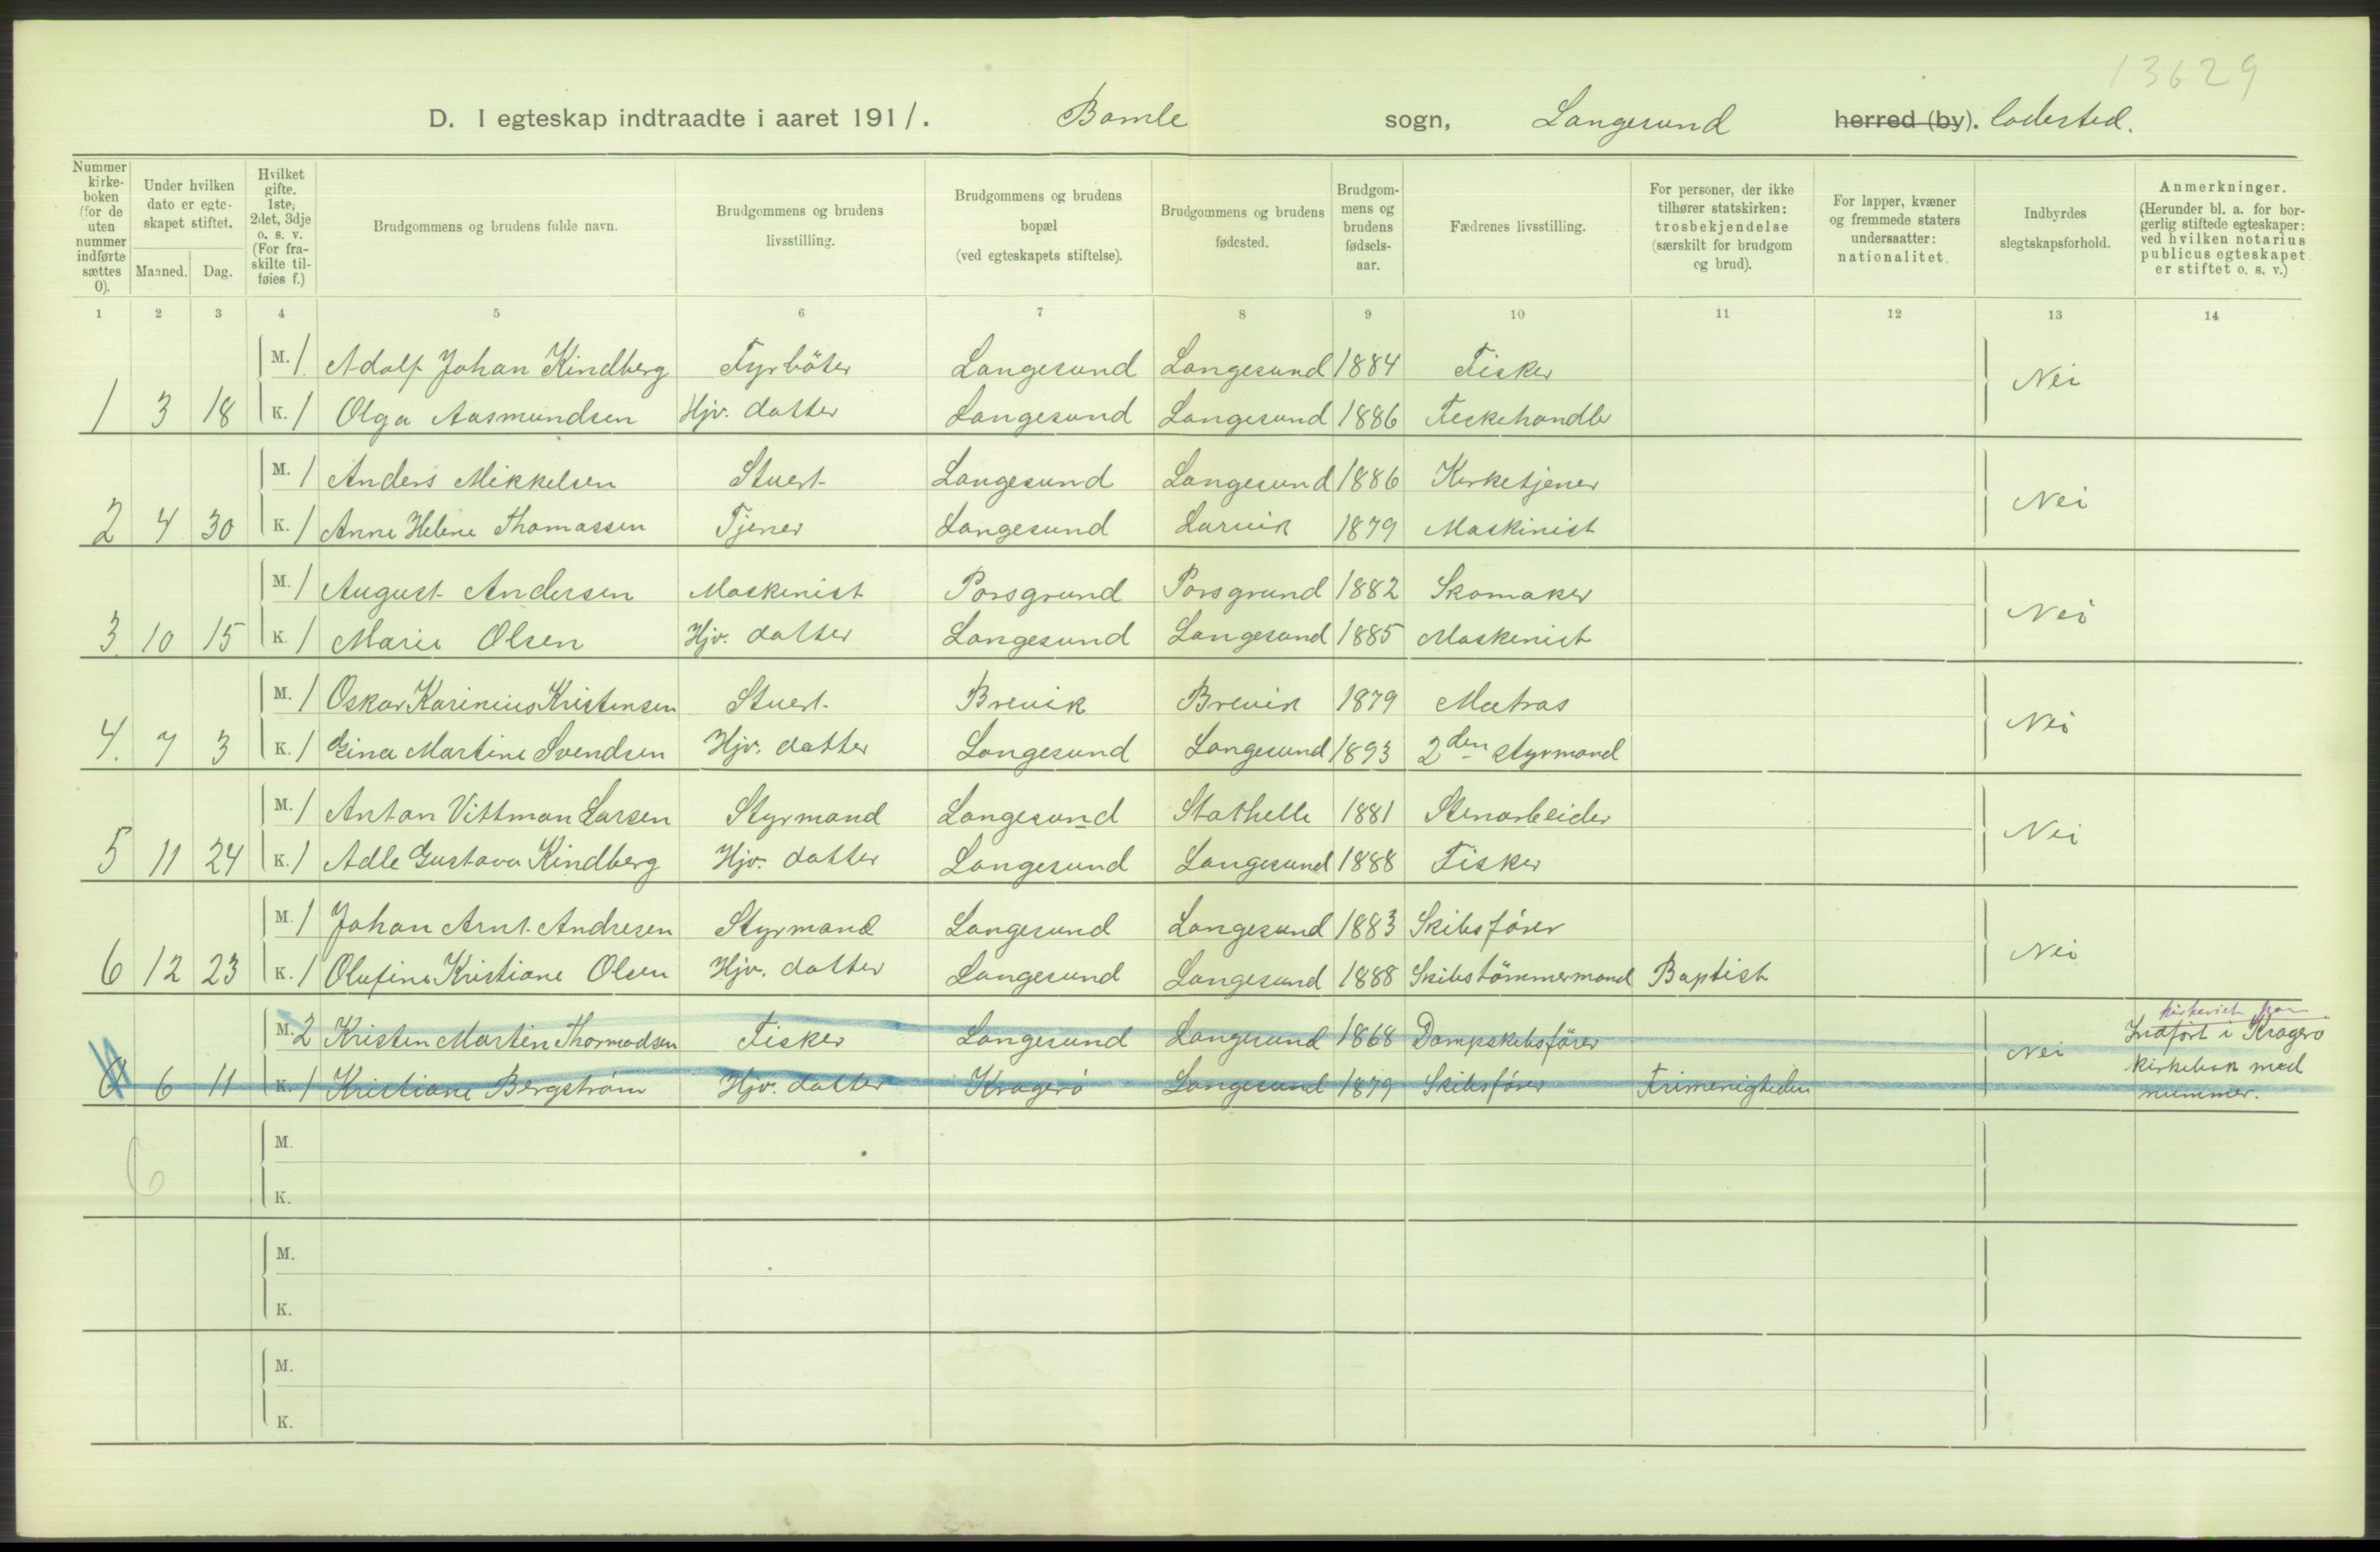 13629
D. I egteskap indtraadte i aaret 1911. Bamle sogn, Langesund herred (by). ladested.
Nummer kirke-boken (for de uten nummer indførte sættes 0).
Under hvilken dato er egte-skapet stiftet.
Maaned. Dag.
Hvilket gifte. 1ste, 2det, 3dje o. s. v. (For fra-skilte til-føies f.)
Brudgommens og brudens fulde navn.
Brudgommens og brudens livsstilling.
Brudgommens og brudens bopæl (ved egteskapets stiftelse).
Brudgommens og brudens fødested.
Brudgom-mens og brudens fødsels-aar.
Fædrenes livsstilling.
For personer, der ikke tilhører statskirken: trosbekjendelse (særskilt for brudgom og brud).
For lapper, kvæner og fremmede staters undersaatter: nationalitet.
Indbyrdes slegtskapsforhold.
Anmerkninger. (Herunder bl. a. for bor-gerlig stiftede egteskaper: ved hvilken notarius publicus egteskapet er stiftet o. s. v.)
1 2 3 4 5 6 7 8 9 10 11 12 13 14
M. 1 Adolf Johan Kindberg Fyrböter Langesund Langesund 1884 Fisker Nei
1 3 18 K. 1 Olga Aasmundsen Hjv. datter Langesund Langesund 1886 Feskehandler
M. 1 Anders Mikkelsen Stuert Langesund Langesund 1886 Kirketjener Nei
2 4 30 K. 1 Anne Helene Thomassen Tjener Langesund Larvik 1879 Maskinist
M. 1 August Andersen Maskenist Porsgrund Porsgrund 1882 Skomaker Nei
3 10 15 K. 1 Marie Olsen Hjv. datter Langesund Langesund 1885 Maskenist
M. 1 Oskar Karinius Kristensen Stuert Brevik Brevik 1879 Matros Nei
4. 7 3 K. 1 Gina Martine Svendsen Hjv. datter Langesund Langesund 1893 2den styrmand
M. 1 Anton Vittman Larsen Styrmand Langesund Stathelle 1881 Stenarbeider Nei
5 11 24 K. 1 Adle Gustava Kindberg Hjv. datter Langesund Langesund 1888 Fisker
M. 1 Johan Arnt Andresen Styrmand Langesund Langesund 1883 Skibsförer Nei
6 12 23 K. 1 Olufine Kristiane Olsen Hjv. datter Langesund Langesund 1888 Skibstömmermand Baptist
M. 2 Kristen Martin Thormodsen Fisker Langesund Langesund 1868 Dampskibsförer Nei Indført i Kragerø
0 6 11 K. 1 Kristiane Bergström Hjv. datter Kragerö Langesund 1879 Skibsförer Frimenigheden kirkebok med
nummer.
6
M.
K.
M.
K.
M.
K.